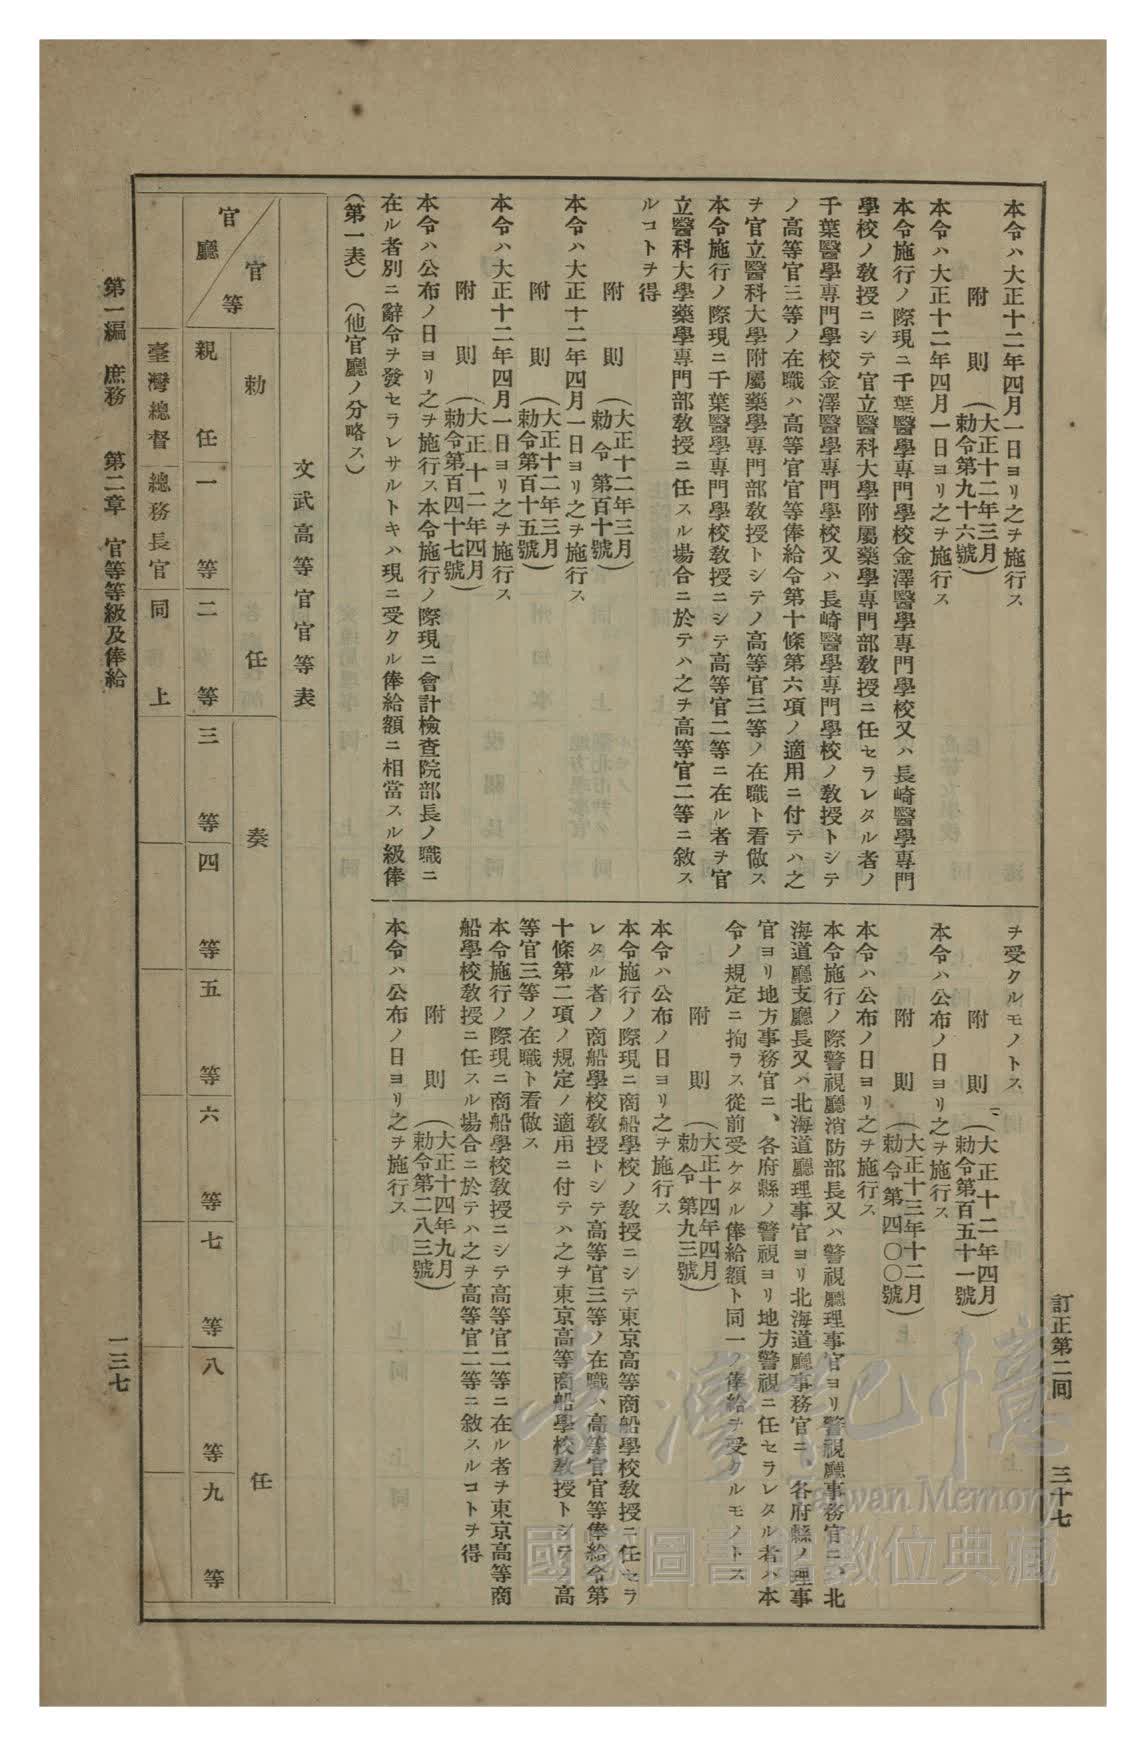 訂正第二囘 三十七
本令ハ大正十二年四月一日ヨリ之ヲ施行ス
附 則 (大正十二年三月勅令第九十六號)
本令ハ大正十二年四月一日ヨリ之ヲ施行ス
本令施行ノ際現ニ千葉醫學專門學校金澤醫學專門學校又ハ長崎醫學專門
學校ノ敎授ニシテ官立醫科大學附屬藥學專門部敎授ニ任セラレタル者ノ
千葉醫學專門學校金澤醫學專門學校又ハ長崎醫學專門學校ノ敎授トシテ
ノ高等官三等ノ在職ハ高等官官等俸給令第十條第六項ノ適用ニ付テハ之
ヲ官立醫科大學附屬藥學專門部敎授トシテノ高等官三等ノ在職ト看做ス
本令施行ノ際現ニ千葉醫學專門學校敎授ニシテ高等官二等ニ在ル者ヲ官
立醫科大學藥學專門部敎授ニ任スル場合ニ於テハ之ヲ高等官二等ニ敘ス
ルコトヲ得
附 則 (大正十二年三月勅令第百十號)
本令ハ大正十二年四月一日ヨリ之ヲ施行ス
附 則 (大正十二年三月勅令第百十五號)
本令ハ大正十二年四月一日ヨリ之ヲ施行ス
附 則 (大正十二年四月勅令第百四十七號)
本令ハ公布ノ日ヨリ之ヲ施行ス本令施行ノ際現ニ會計檢査院部長ノ職ニ
在ル者別ニ辭令ヲ發セラレサルトキハ現ニ受クル俸給額ニ相當スル級俸
ヲ受クルモノトス
附 則 (大正十二年四月勅令第百五十一號)
本令ハ公布ノ日ヨリ之ヲ施行ス
附 則 (大正十三年十二月勅令第四〇〇號)
本令ハ公布ノ日ヨリ之ヲ施行ス
本令施行ノ際警視廳消防部長又ハ警視廳理事官ヨリ警視廳事務官ニ、北
海道廳支廳長又ハ北海道廳理事官ヨリ北海道廳事務官ニ、各府縣ノ理事
官ヨリ地方事務官ニ、各府縣ノ警視ヨリ地方警視ニ任セラレタル者ハ本
令ノ規定ニ拘ラス從前受ケタル俸給額ト同一ノ俸給ヲ受クルモノトス
附 則 (大正十四年四月勅令第九三號)
本令ハ公布ノ日ヨリ之ヲ施行ス
本令施行ノ際現ニ商船學校ノ敎授ニシテ東京高等商船學校敎授ニ任セラ
レタル者ノ商船學校敎授トシテ高等官三等ノ在職ハ高等官官等俸給令第
十條第二項ノ規定ノ適用ニ付テハ之ヲ東京高等商船學校敎授トシテノ高
等官三等ノ在職ト看做ス
本令施行ノ際現ニ商船學校敎授ニシテ高等官二等ニ在ル者ヲ東京高等商
船學校敎授ニ任スル場合ニ於テハ之ヲ高等官二等ニ敘スルコトヲ得
附 則 (大正十四年九月勅令第二八三號)
本令ハ公布ノ日ヨリ之ヲ施行ス
(第一表) (他官廳ノ分略ス)
文武高等官官等表
官等 官廳
勅 任 奏 任
親 任 一 等 二 等 三 等 四 等 五 等 六 等 七 等 八 等 九 等
臺灣總督 總務長官 同 上
第一編 庶務 第二章 官等等級及俸給 一三七
臺灣記憶
Taiwan Memory
國家圖書館數位典藏